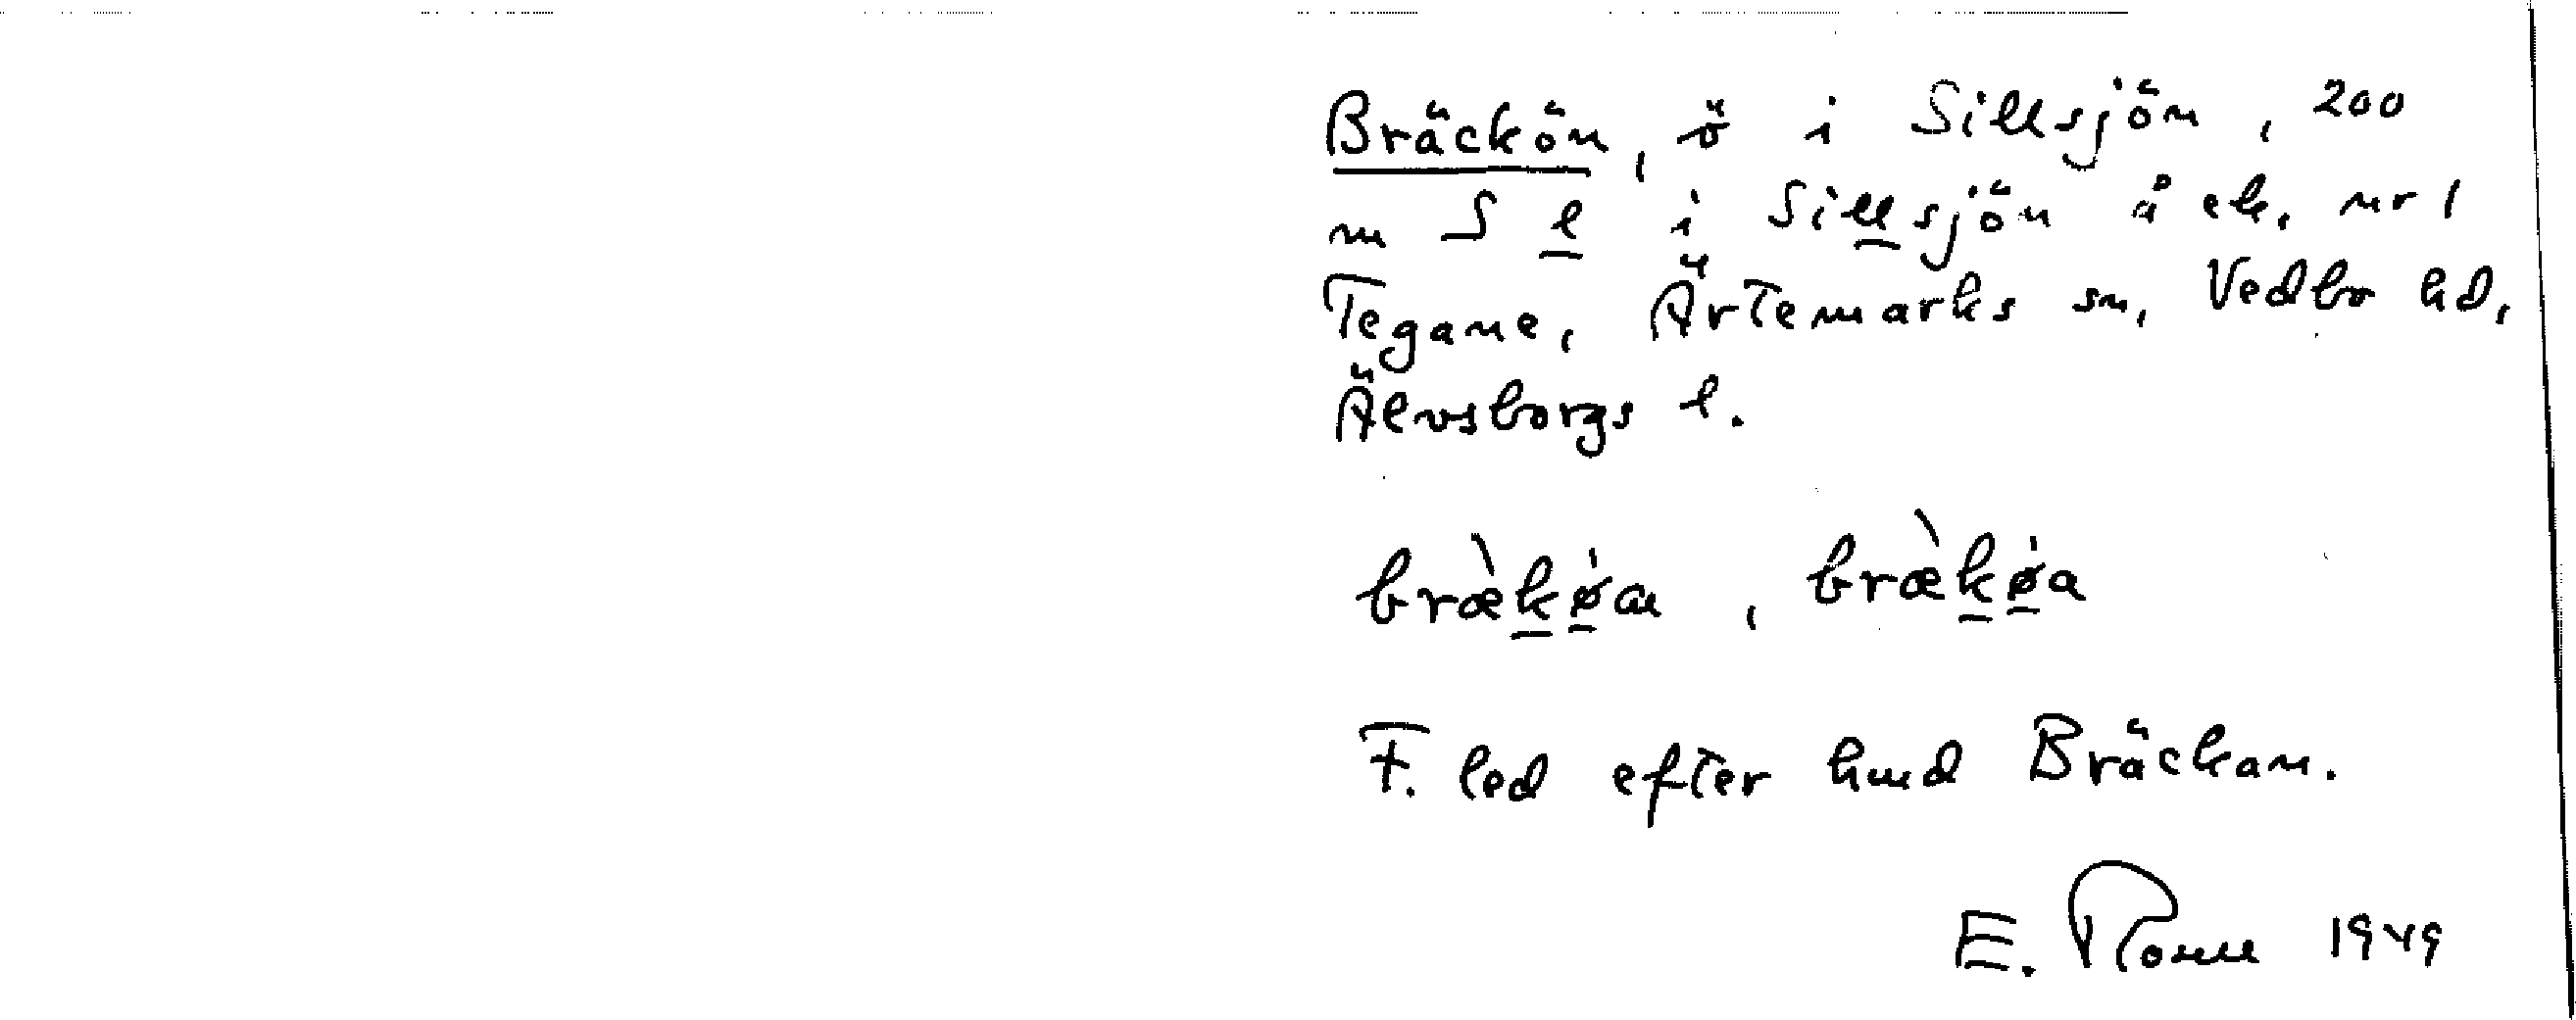 Bräckön, ö i Sillsjön, 200
m S l i Sillsjön å ek. nr 1
Tegane, Ärtemarks sn, Vedbo hd,
Älvsborgs l.
bræ̀kø̇an, bræ̀kø̇a
F. led efter hmd Bräckan.
E. 1949